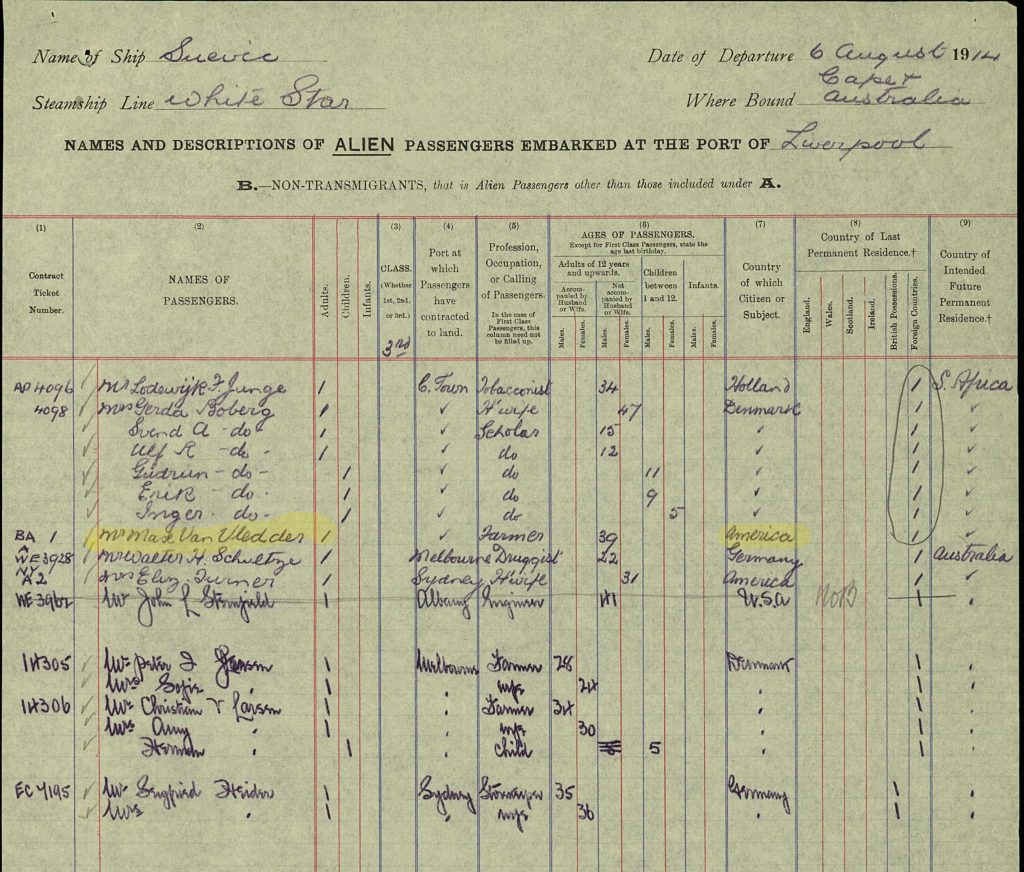 Name of Ship Suevic
Date of Departure 6 August 1914
Steamship Line White Star
Cape &
Where Bound Australia
NAMES AND DESCRIPTIONS OF ALIEN PASSENGERS EMBARKED AT THE PORT OF Liverpool
B.—NON-TRANSMIGRANTS, that is Alien Passengers other than those included under A.
(1) (2) (3) (4) (5) (6) (7) (8) (9)
Contract Ticket Number.
NAMES OF PASSENGERS.
Adults.
Children.
Infants.
CLASS. (Whether 1st, 2nd, or 3rd.)
3rd
Port at which Passengers have contracted to land.
Profession, Occupation, or Calling of Passengers.
In the case of First Class Passengers, this column need not be filled up.
AGES OF PASSENGERS.
Except for First Class Passengers, state the age last birthday.
Adults of 12 years and upwards.
Accompanied by Husband or Wife.
Not accompanied by Husband or Wife.
Children between 1 and 12.
Infants.
Males. Females. Males. Females. Males. Females. Males. Females.
Country of which Citizen or Subject.
Country of Last Permanent Residence.†
England.
Wales.
Scotland.
Ireland.
British Possessions.
Foreign Countries.
Country of Intended Future Permanent Residence.†
AD 4096 Mr Lodewijk F. Junge 1 C. Town Tobacconist 34 Holland 1 S. Africa
4098 Mrs Gerda Boberg 1 ✓ H'wife 47 Denmark 1 ✓
Svend A - do - 1 ✓ Scholar 15 ✓ 1 ✓
Ulf R - do - 1 ✓ do 12 ✓ 1 ✓
Gudrun - do - 1 ✓ do 11 ✓ 1 ✓
Erik - do - 1 ✓ do 9 ✓ 1 ✓
Inger - do - 1 ✓ do 5 ✓ 1 ✓
BA 1 Mr Max Van Vledder 1 ✓ Farmer 39 America 1
WE 3928 Mr Walter H. Schultze 1 Melbourne Druggist 22 Germany 1 Australia
A 2 Mrs Eliz. Turner 1 Sydney H'wife 31 America 1 ✓
WE 3962 Mr John L 1 Albany Engineer 41 U.S.A 1 "
14305 Mr Peter J Jensen 1 Melbourne Farmer 28 Denmark 1 "
Mrs Sofie " 1 " wife 24 " 1 "
14306 Mr Christian V Larsen 1 " Farmer 34 " 1 "
Mrs Amy " 1 " wife 30 " 1 "
Herman " 1 " Child 5 " 1 "
EC 7195 Mr Siegfried Heider 1 Sydney Storekeeper 35 Germany 1 "
Mrs " 1 " wife 36 " 1 "